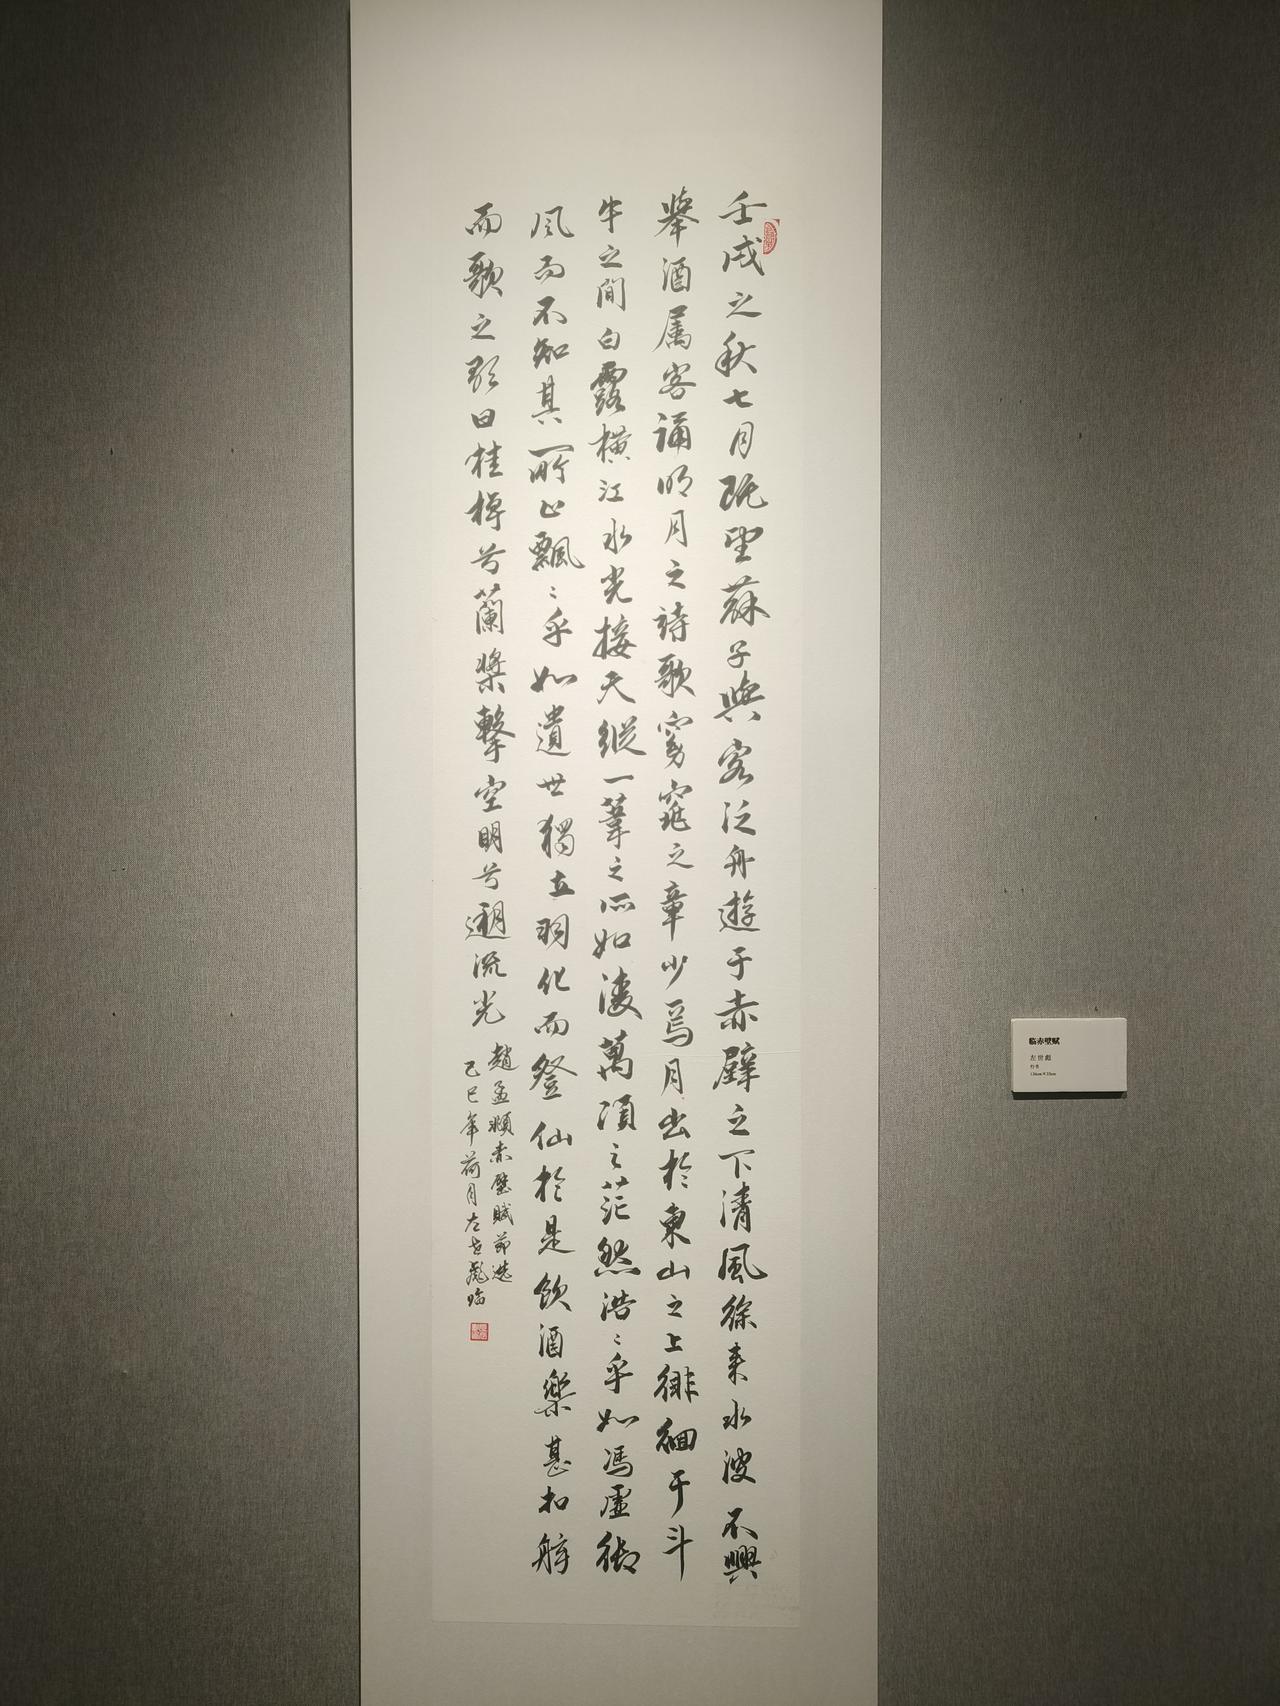 壬戌之秋七月既望蘇子與客泛舟遊于赤壁之下清風徐来水波不興
舉酒属客誦明月之詩歌窈窕之章少焉月出於東山之上徘徊于斗
牛之間白露横江水光接天縦一葦之所如凌萬頃之茫然浩〻乎如馮虚御
風而不知其所止飄〻乎如遺世獨立羽化而登仙於是飲酒樂甚扣舷
而歌之歌曰桂棹兮蘭槳擊空明兮遡流光
趙孟頫赤壁賦節選
乙巳年荷月左世彪临
临赤壁赋
左世彪
行书